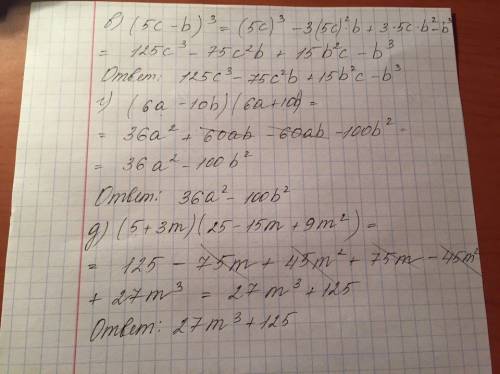 в) (5c - b)³ = (5c)³ - 3(5c)²b + 3·5c·b² - b³
= 125c³ - 75c²b + 15b²c - b³
Ответ: 125c³ - 75c²b + 15b²c - b³
г) (6a - 10b)(6a + 10b) =
= 36a² + 60ab - 60ab - 100b² =
= 36a² - 100b²
Ответ: 36a² - 100b²
д) (5 + 3m)(25 - 15m + 9m²) =
= 125 - 75m + 45m² + 75m - 45m²
+ 27m³ = 27m³ + 125
Ответ: 27m³ + 125